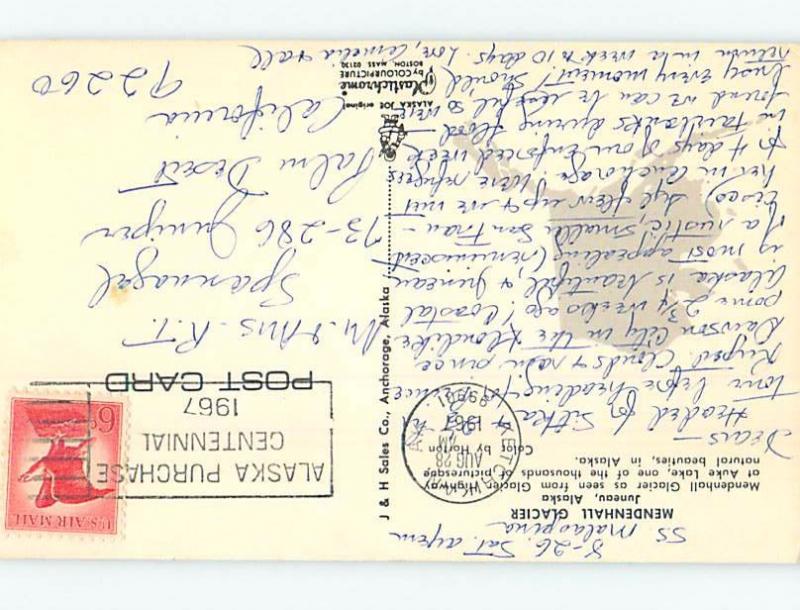 8-26. Sat. aft
SS. Malaspina
MENDENHALL GLACIER
Juneau, Alaska
Mendenhall Glacier as seen from Glacier Highway
at Auke Lake, one of the thousands of picturesque
natural beauties, in Alaska.
Color by Horton
Dears —
Headed for Sitka & 2 hr
tour before heading to Prince
Rupert. Clouds & rain since
Dawson City in the Klondike
some 2 3/4 weeks ago! Coastal
Alaska is beautiful & Juneau
is most appealing (reminiscent
of a rustic, smaller San Fran-
cisco)
her in Anchorage. Were refugees
for 4 days of our enforced week
in Fairbanks during flood —
found we can be useful so were
busy every moment! Should
return in a week to 10 days. Love,
J & H Sales Co., Anchorage, Alaska
ALASKA JOE original
Plastichrome
by COLOURPICTURE
BOSTON, MASS. 02130
U.S. AIR MAIL
6¢
ALASKA PURCHASE
CENTENNIAL
1967
AUG 28
AM
1967
99801
POST CARD
Mr. & Mrs. R. T.
Spannagel
73-286 Juniper
Palm Desert
California
92260